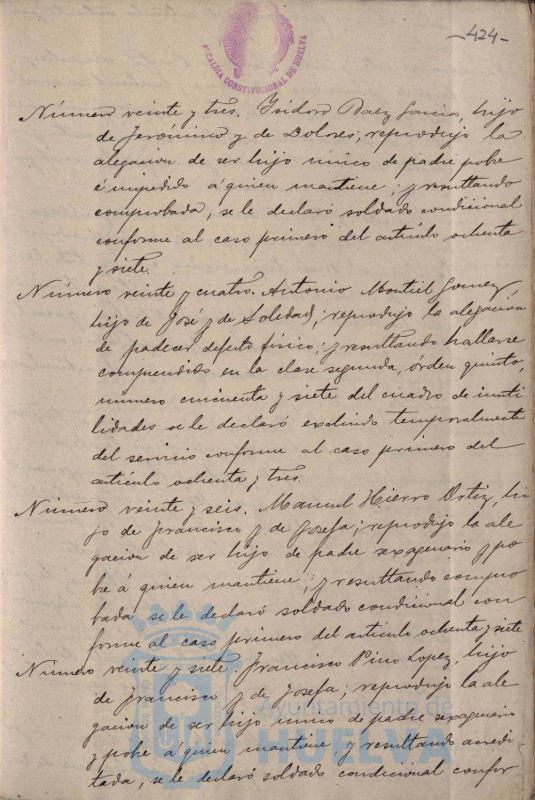 -424-
ALCALDIA CONSTITUCIONAL DE HUELVA
Número veinte y tres. Isidoro Paez Garcia, hijo
de Jerónimo y de Dolores; reprodujo la
alegacion de ser hijo único de padre pobre
é impedido á quien mantiene; y resultando
comprobada, se le declaró soldado condicional
conforme al caso primero del artículo ochenta
y siete.
Número veinte y cuatro. Antonio Montiel Gomez,
hijo de José y de Soledad; reprodujo la alegación
de padecer defecto físico; y resultando hallarse
comprendido en la clase segunda, órden quinto,
número cincuenta y siete del cuadro de inuti
lidades se le declaró excluido temporalmente
del servicio conforme al caso primero del
artículo ochenta y tres.
Número veinte y seis. Manuel Hierro Ortiz, hi
jo de Francisco y de Josefa; reprodujo la ale
gacion de ser hijo de padre sexagenario y po
bre á quien mantiene; y resultando compro
bada se le declaró soldado condicional con
forme al caso primero del artículo ochenta y siete
Número veinte y siete. Francisco Pino Lopez, hijo
de Francisco y de Josefa; reprodujo la ale
gacion de ser hijo único de padre sexagenario
y pobre á quien mantiene, y resultando acredi
tada, se le declaró soldado condicional confor
Ayuntamiento de
HUELVA